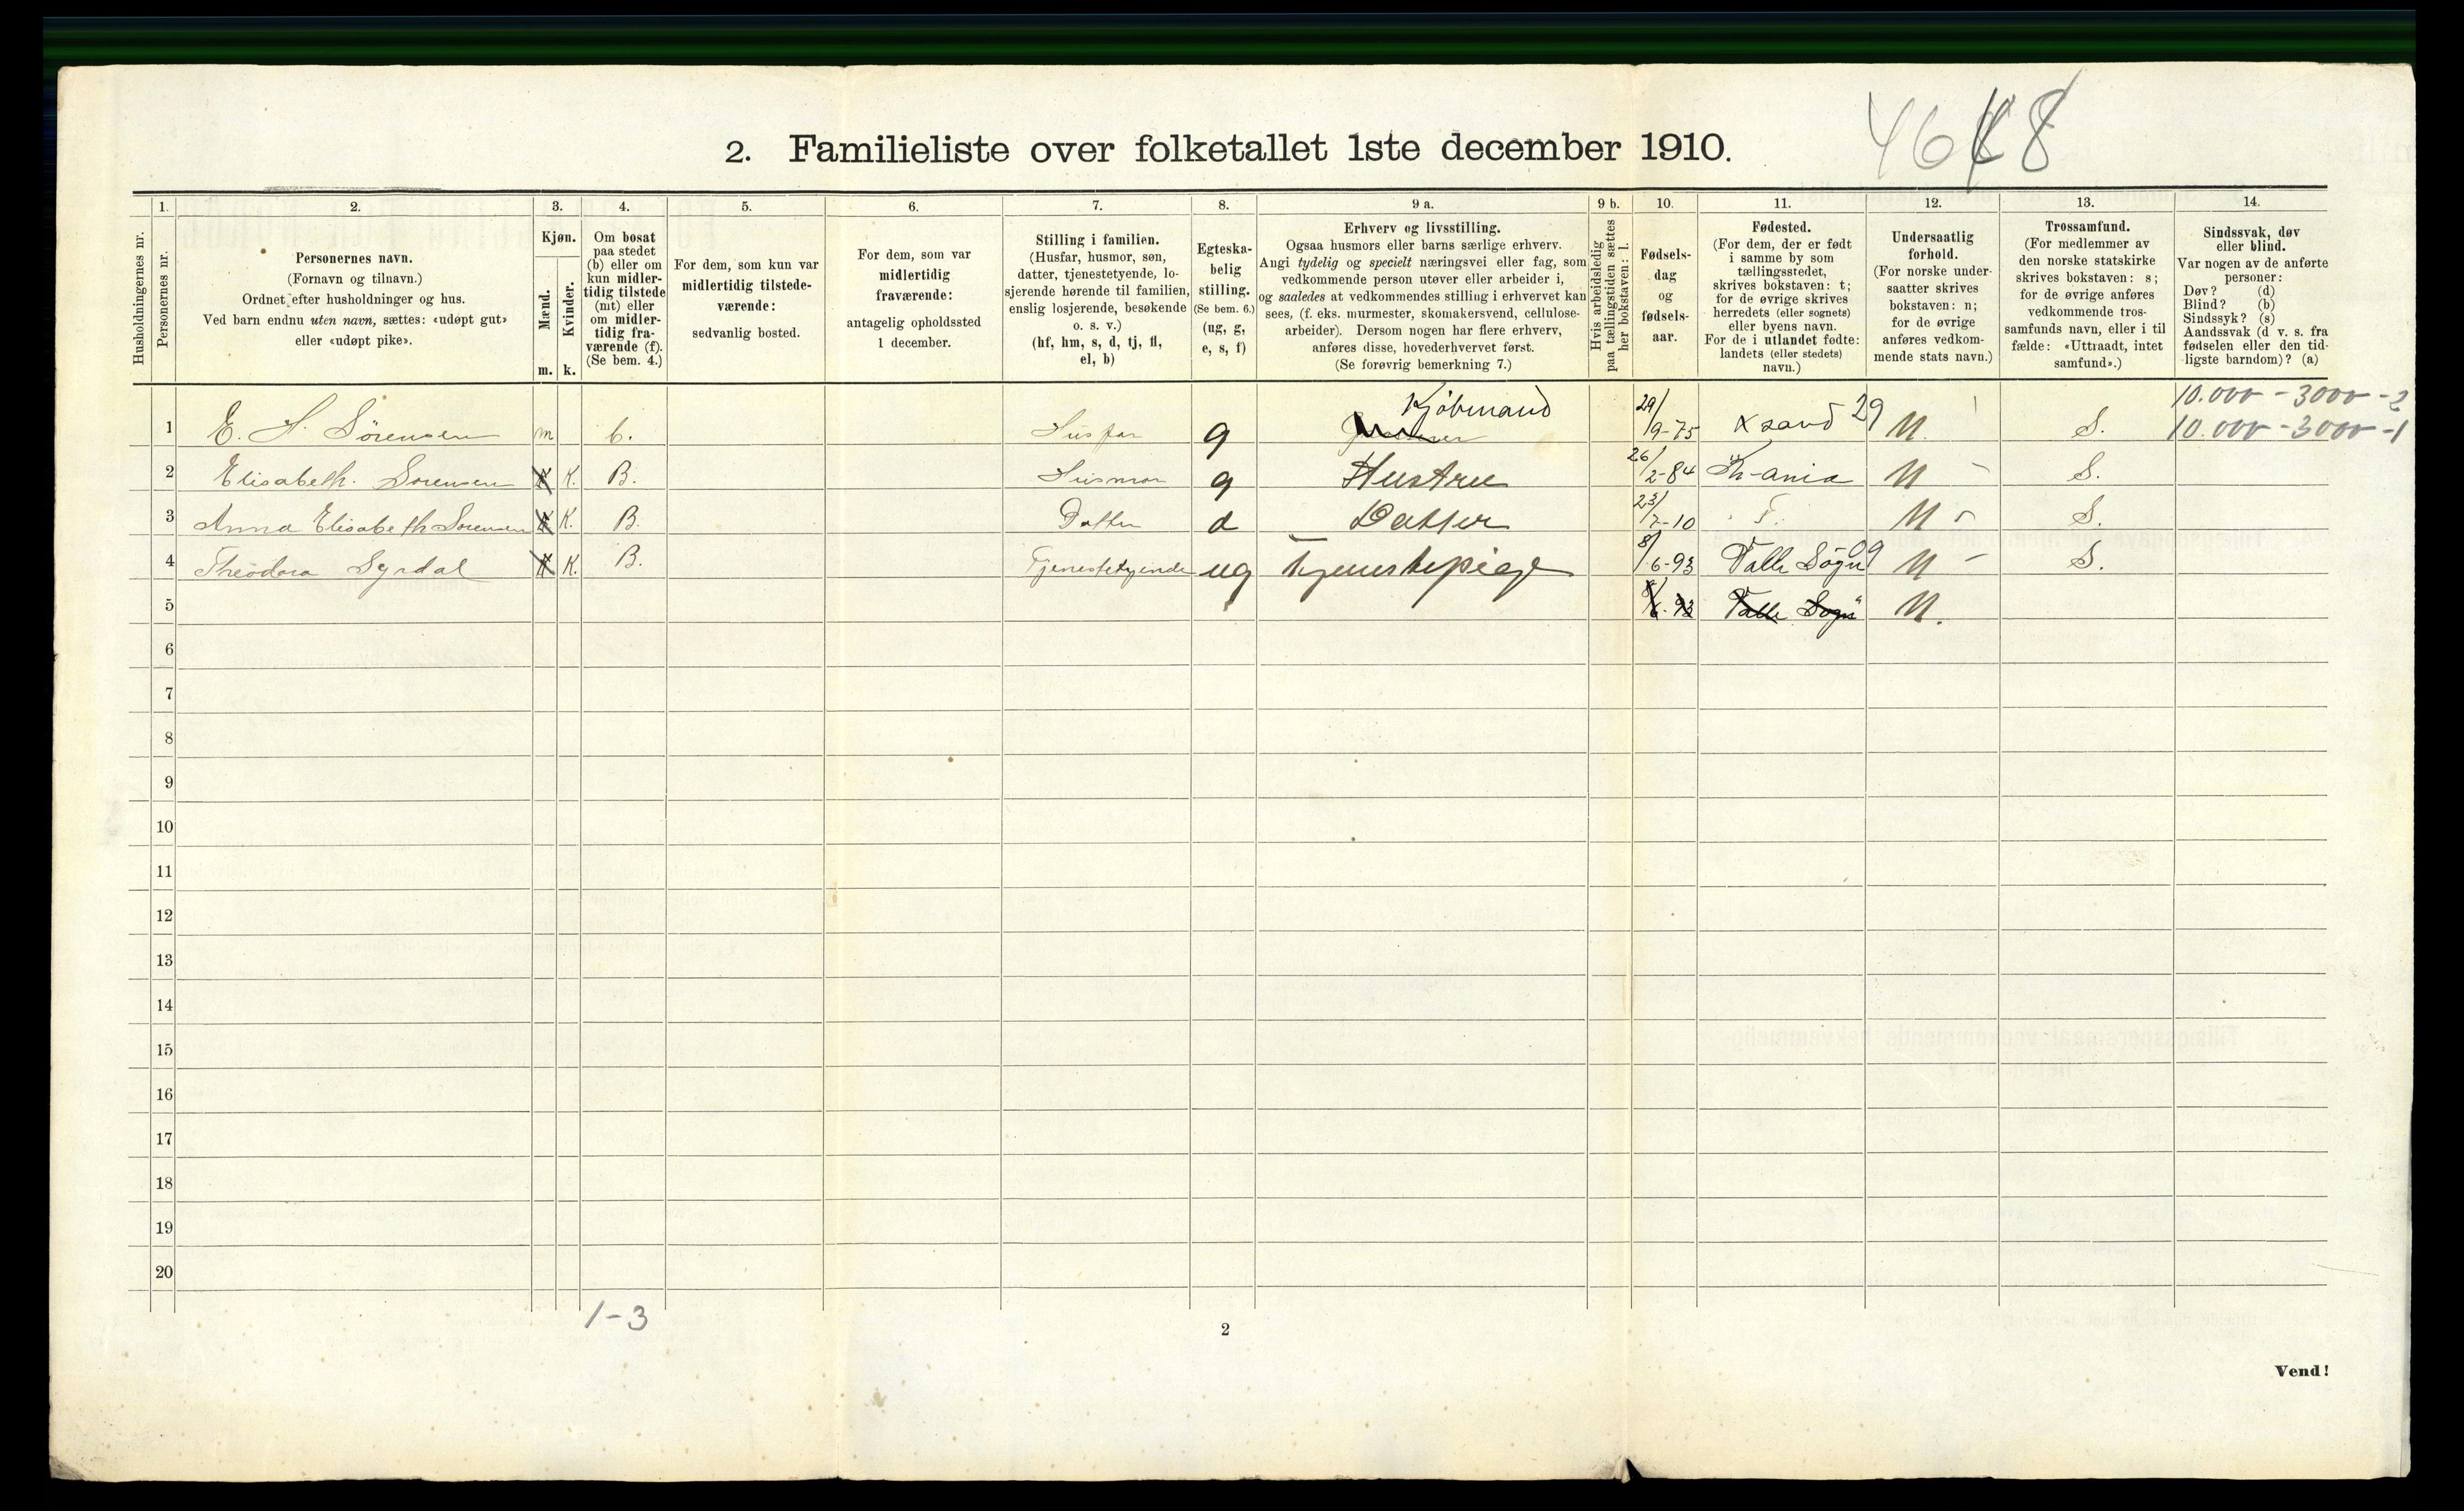 2. Familieliste over folketallet 1ste december 1910.
46 8
1. 2. 3. 4. 5. 6. 7. 8. 9 a. 9 b. 10. 11. 12. 13. 14.
Husholdningernes nr.
Personernes nr.
Personernes navn.
(Fornavn og tilnavn.)
Ordnet efter husholdninger og hus.
Ved barn endnu uten navn, sættes: «udøpt gut»
eller «udøpt pike».
Kjøn.
Mænd.
Kvinder.
m. k.
Om bosat
paa stedet
(b) eller om
kun midler-
tidig tilstede
(mt) eller
om midler-
tidig fra-
værende (f).
(Se bem. 4.)
For dem, som kun var
midlertidig tilstede-
værende:
sedvanlig bosted.
For dem, som var
midlertidig
fraværende:
antagelig opholdssted
1 december.
Stilling i familien.
(Husfar, husmor, søn,
datter, tjenestetyende, lo-
sjerende hørende til familien,
enslig losjerende, besøkende
o. s. v.)
(hf, hm, s, d, tj, fl,
el, b)
Egteska-
belig
stilling.
(Se bem. 6.)
(ug, g,
e, s, f)
Erhverv og livsstilling.
Ogsaa husmors eller barns særlige erhverv.
Angi tydelig og specielt næringsvei eller fag, som
vedkommende person utøver eller arbeider i,
og saaledes at vedkommendes stilling i erhvervet kan
sees, (f. eks. murmester, skomakersvend, cellulose-
arbeider). Dersom nogen har flere erhverv,
anføres disse, hovederhvervet først.
(Se forøvrig bemerkning 7.)
Hvis arbeidsledig
paa tællingstiden sættes
her bokstaven: l.
Fødsels-
dag
og
fødsels-
aar.
Fødested.
(For dem, der er født
i samme by som
tællingsstedet,
skrives bokstaven: t;
for de øvrige skrives
herredets (eller sognets)
eller byens navn.
For de i utlandet fødte:
landets (eller stedets)
navn.)
Undersaatlig
forhold.
(For norske under-
saatter skrives
bokstaven: n;
for de øvrige
anføres vedkom-
mende stats navn.)
Trossamfund.
(For medlemmer av
den norske statskirke
skrives bokstaven: s;
for de øvrige anføres
vedkommende tros-
samfunds navn, eller i til
fælde: «Uttraadt, intet
samfund».)
Sindssvak, døv
eller blind.
Var nogen av de anførte
personer:
Døv? (d)
Blind? (b)
Sindssyk? (s)
Aandssvak (d v. s. fra
fødselen eller den tid-
ligste barndom)? (a)
10.000 - 3000 - 2
Kjøbmand
1 E. S. Sörensen m b. Husfar g 29/9-75 Xsand 29 N. S. 10.000 - 3000 - 1
2 Elisabeth. Sorensen K. B. Husmor g Hustru 26/2-84 Kr-ania N S.
3 Anna Elisabeth Sorensen K. B. Datter d Datter 23/7-10 T. N S.
4 Theodora Syrdal K. B. Tjenestetyende ug Tjenestepige 8/6-93 Valle Sogn N S.
5 8/6-93 Valle Sogn N.
6
7
8
9
10
11
12
13
14
15
16
17
18
19
20
1-3
2
Vend!